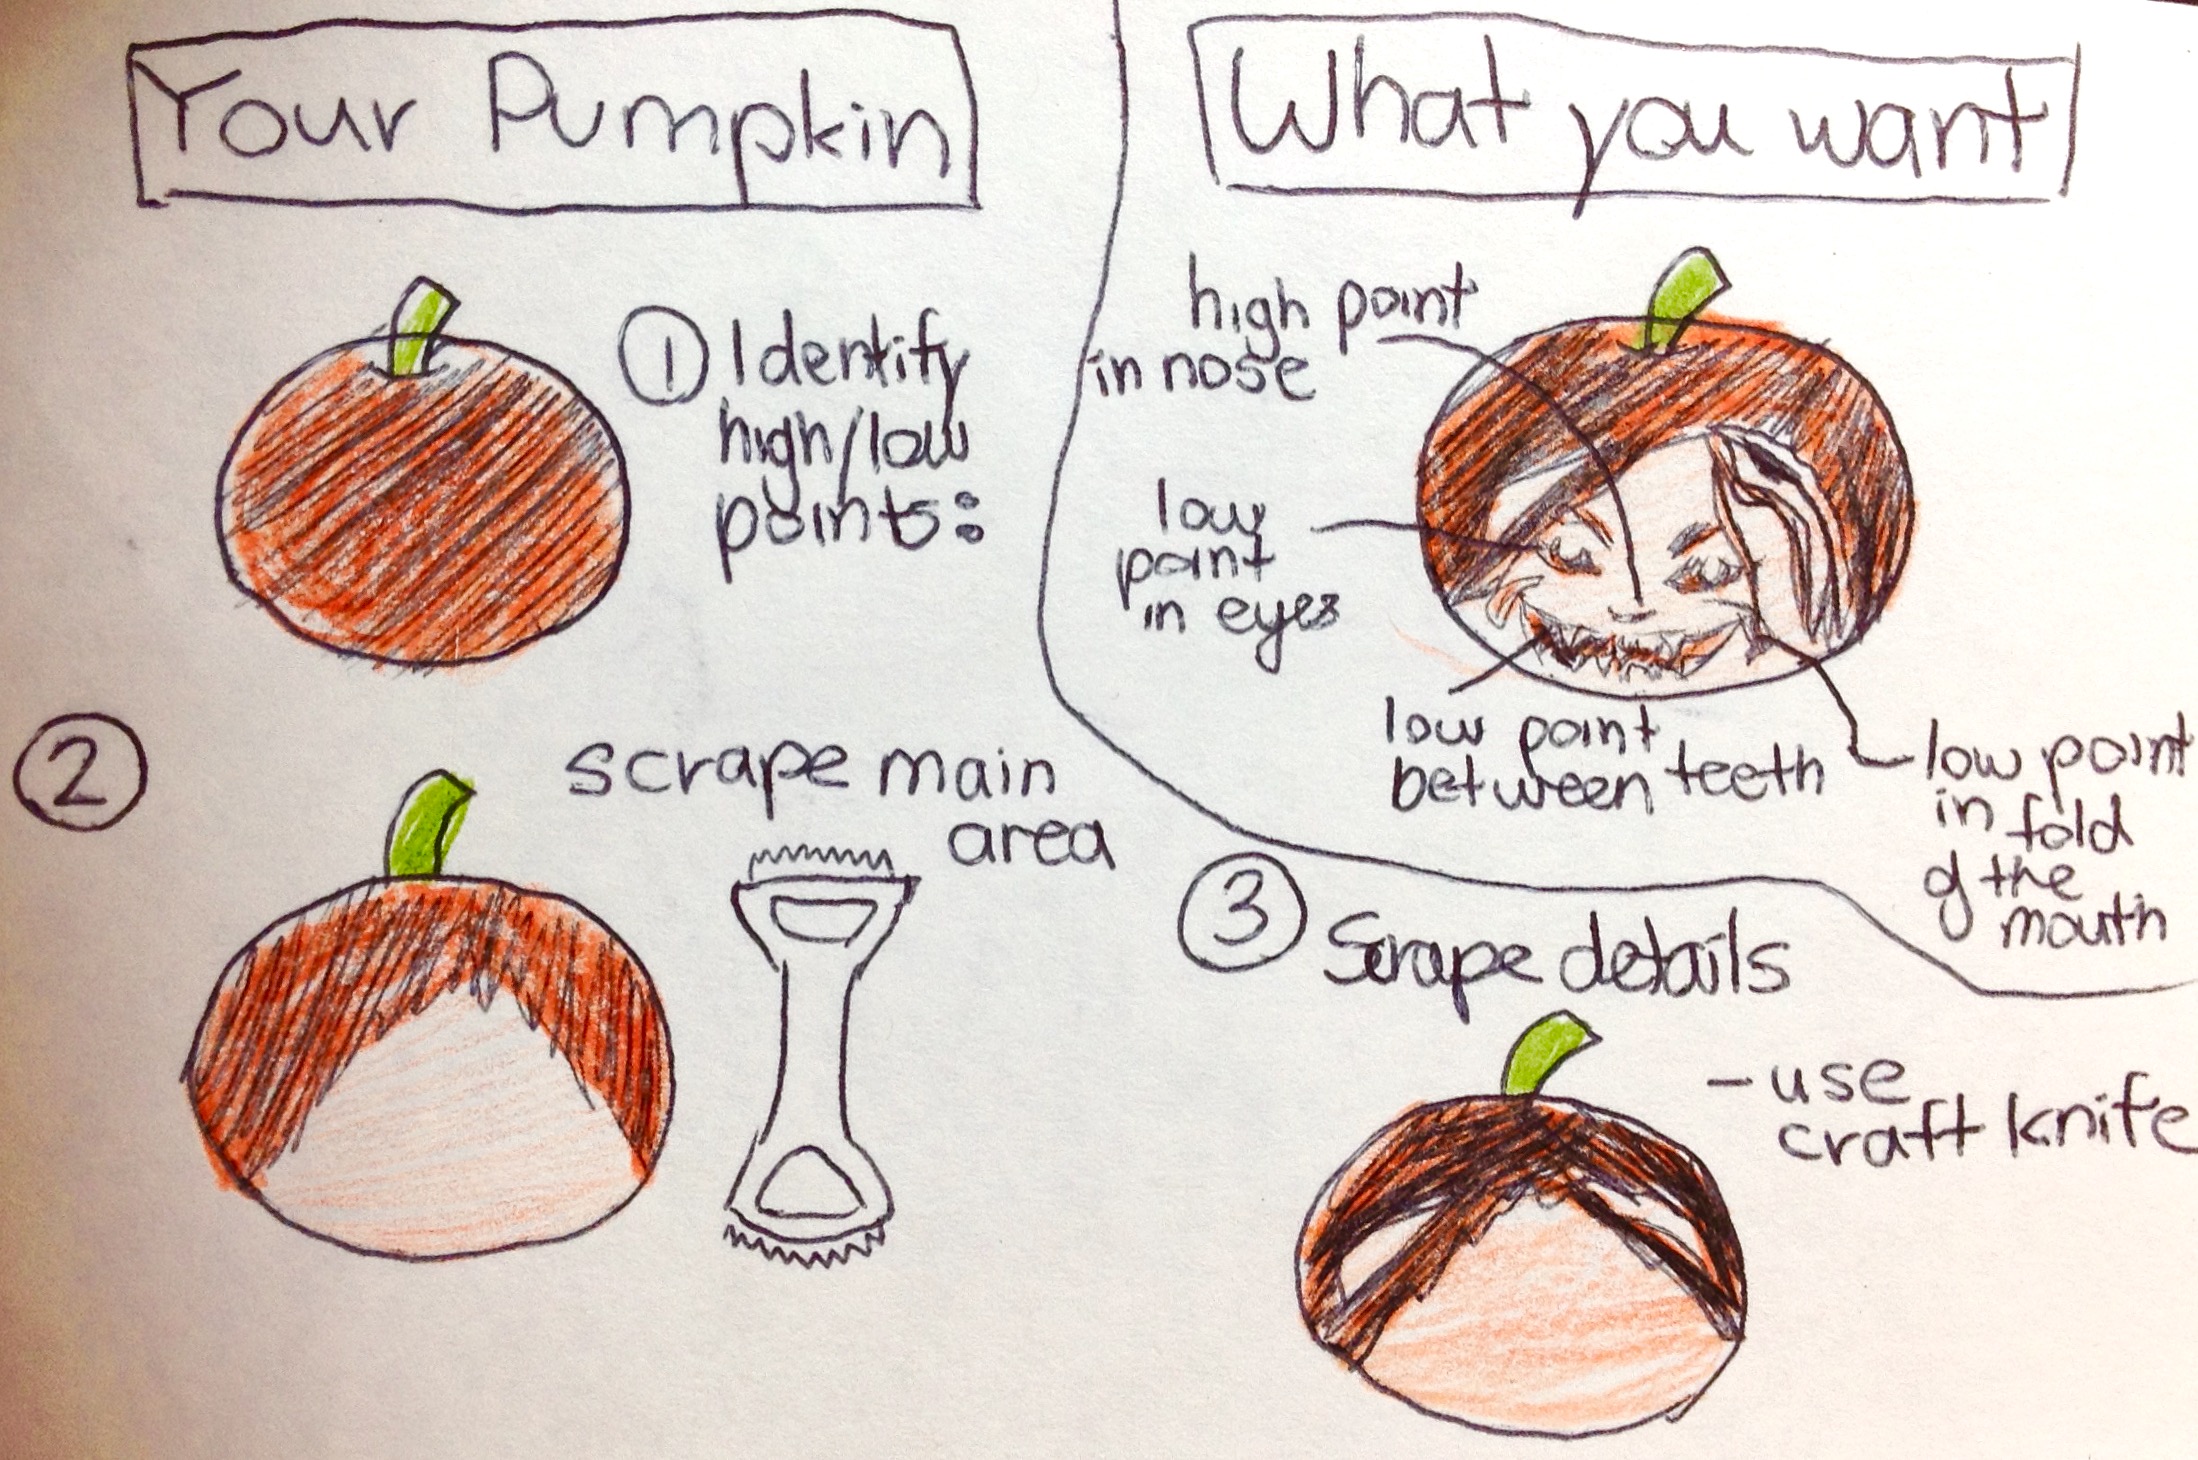 Your Pumpkin
① Identify
high/low
points:
What you want
high point
in nose
low
point
in eyes
low point
between teeth
low point
in fold
of the
mouth
②
scrape main
area
③
Scrape details
- use
craft knife